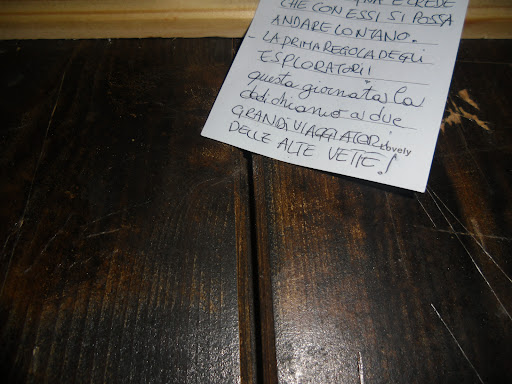 E CREDE
CHE CON ESSI SI POSSA
ANDARE LONTANO.
LA PRIMA REGOLA DEGLI
ESPLORATORI!
questa giornata la
dedichiamo a due
GRANDI VIAGGIATORI
Lovely
DELLE ALTE VETTE!